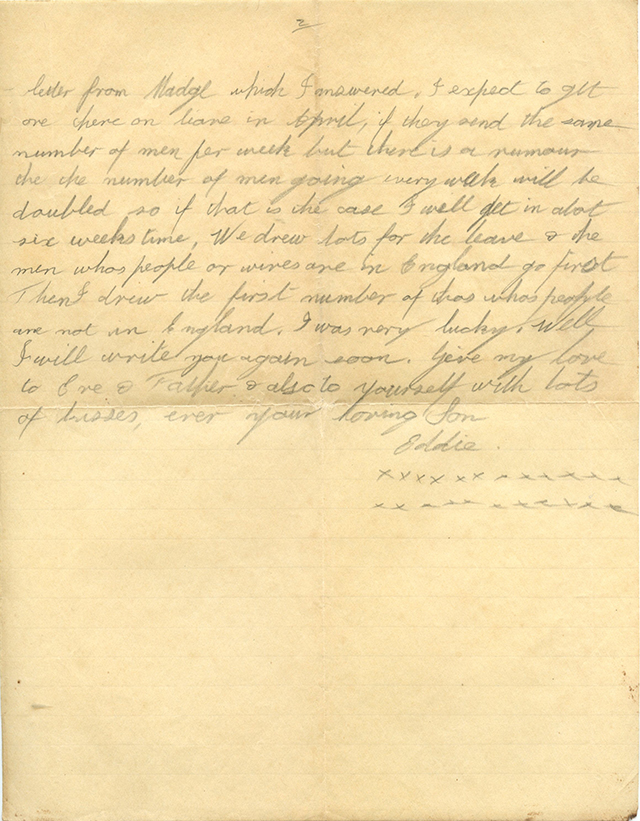 2
letter from Madge which I answered. I expect to get
ore there on leave in April, if they send the same
number of men per week but there is a rumour
the the number of men going every week will be
doubled so if that is the case I well get in abot
six weeks time, We drew lots for the leave & the
men whos people or wives are in England go first
Then I drew the first number of thos whos people
are not in England. I was very lucky. Well
I will write you again soon. Give my love
to Eve & Father & also to yourself with lots
of kisses, ever your loving Son
Eddie.
x x x x x x x x x x x x x
x x x x x x x x x x x